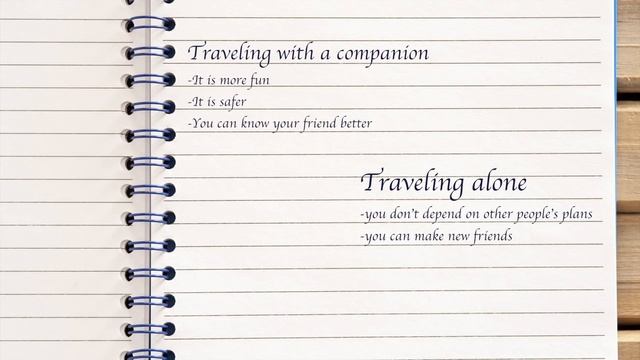 Traveling with a companion
-It is more fun
-It is safer
-You can know your friend better
Traveling alone
-you don't depend on other people's plans
-you can make new friends